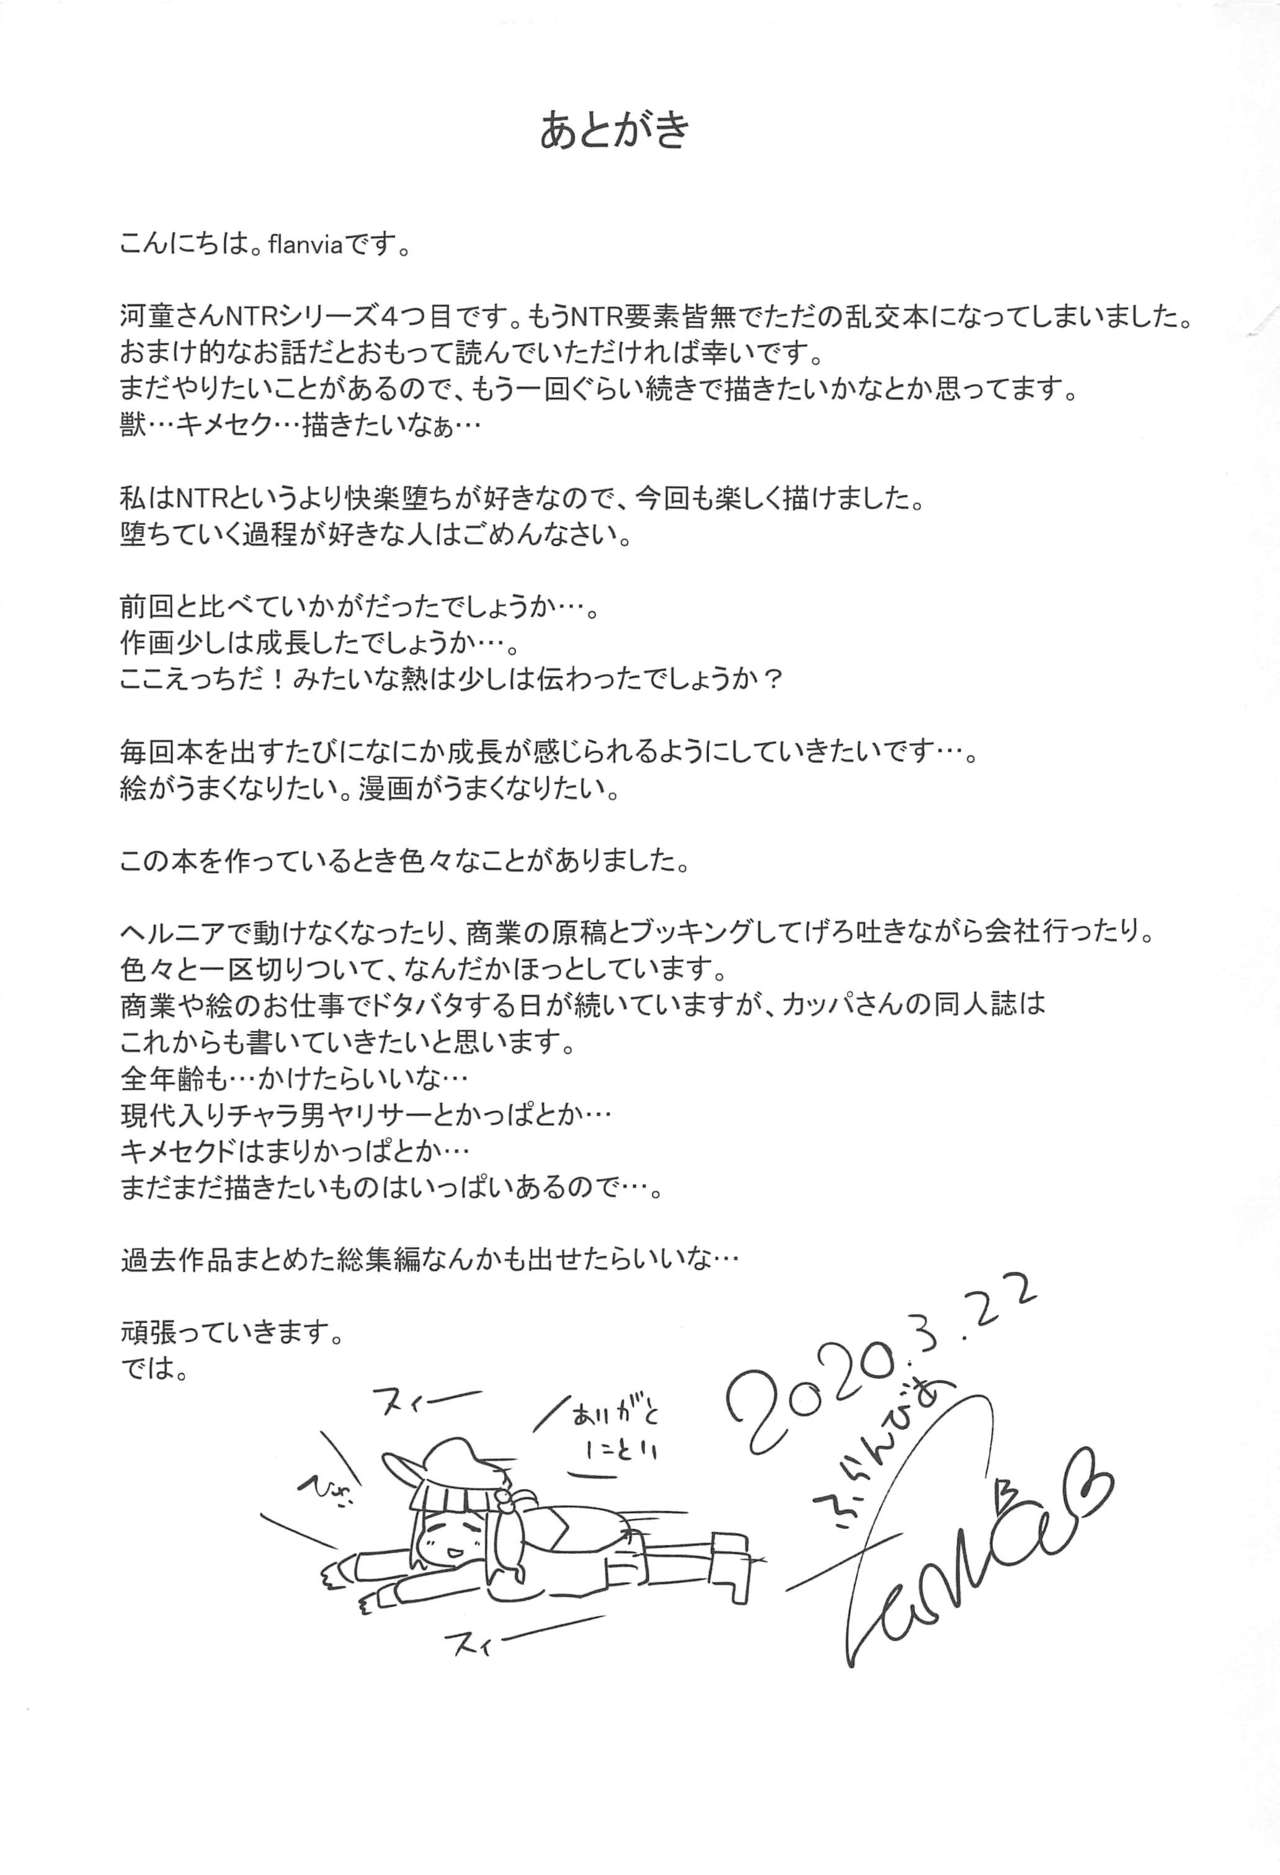 あとがき
こんにちは。flanviaです。
河童さんNTRシリーズ4つ目です。もうNTR要素皆無でただの乱交本になってしまいました。
おまけ的なお話だとおもって読んでいただければ幸いです。
まだやりたいことがあるので、もう一回ぐらい続きで描きたいかなとか思ってます。
獣…キメセク…描きたいなぁ…
私はNTRというより快楽堕ちが好きなので、今回も楽しく描けました。
堕ちていく過程が好きな人はごめんなさい。
前回と比べていかがだったでしょうか…。
作画少しは成長したでしょうか…。
ここえっちだ！みたいな熱は少しは伝わったでしょうか？
毎回本を出すたびになにか成長が感じられるようにしていきたいです…。
絵がうまくなりたい。漫画がうまくなりたい。
この本を作っているとき色々なことがありました。
ヘルニアで動けなくなったり、商業の原稿とブッキングしてげろ吐きながら会社行ったり。
色々と一区切りついて、なんだかほっとしています。
商業や絵のお仕事でドタバタする日が続いていますが、カッパさんの同人誌は
これからも書いていきたいと思います。
全年齢も…かけたらいいな…
現代入りチャラ男ヤリサーとかっぱとか…
キメセクドはまりかっぱとか…
まだまだ描きたいものはいっぱいあるので…。
過去作品まとめた総集編なんかも出せたらいいな…
頑張っていきます。
では。
2020.3.22
ふらんびあ
スィー
ありがと
にとり
スィー